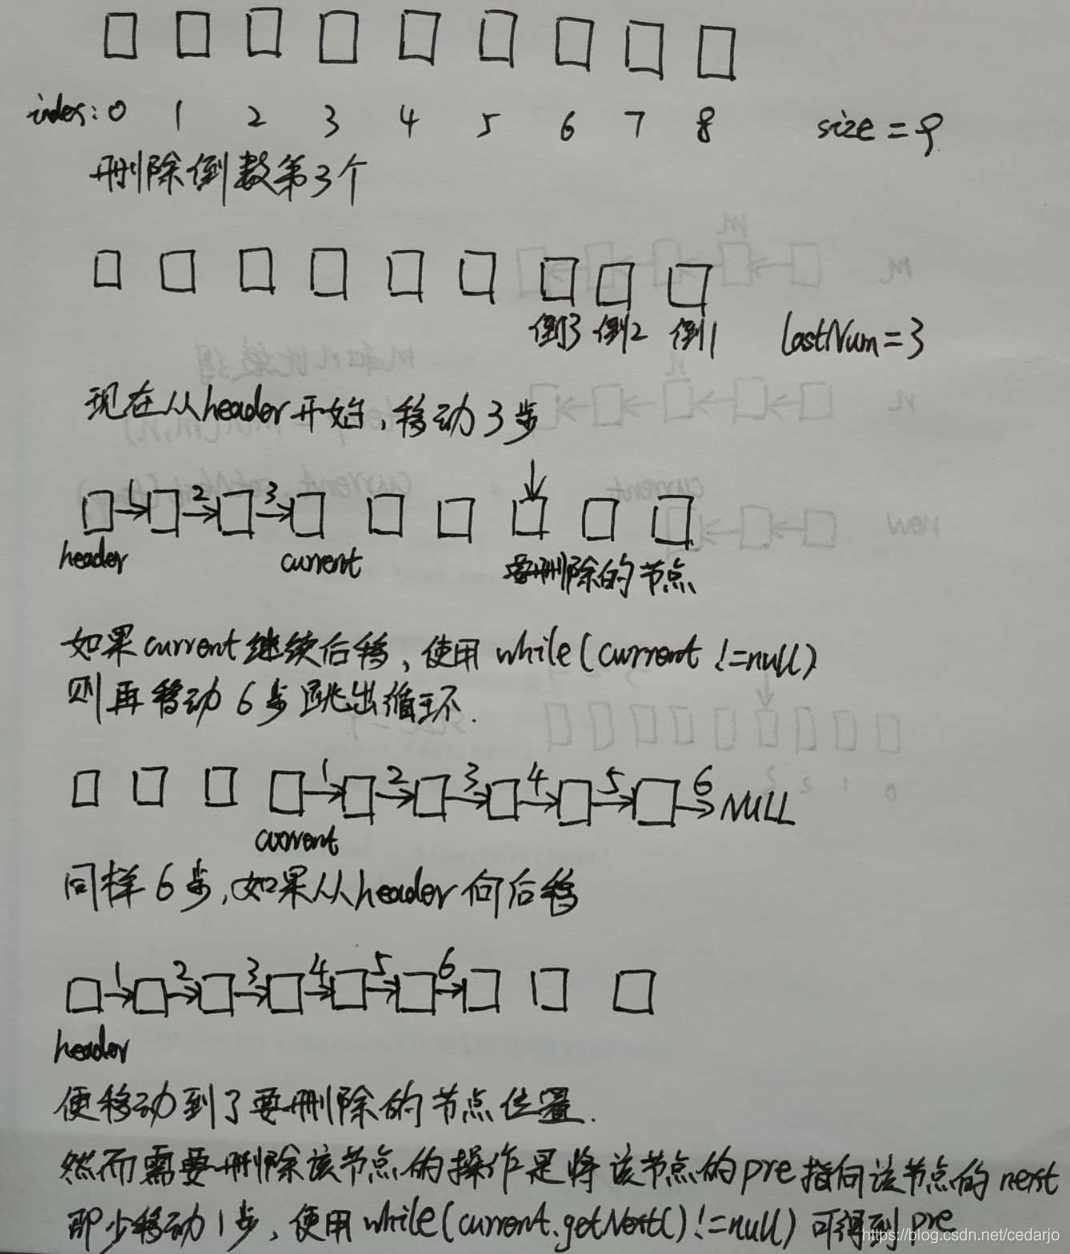 index: 0 1 2 3 4 5 6 7 8 size = 9
删除倒数第3个
倒3 倒2 倒1 lastNum = 3
现在从header开始, 移动3步
1 2 3
header current 要删除的节点
如果current继续后移, 使用while(current !=null)
则再移动6步跳出循环.
1 2 3 4 5 6 NULL
current
同样6步, 如果从header向后移
1 2 3 4 5 6
header
便移动到了要删除的节点位置.
然而需要删除该节点的操作是将该节点的pre指向该节点的next
即少移动1步, 使用while(current.getNext() !=null) 可得到pre
https://blog.csdn.net/cedarjo